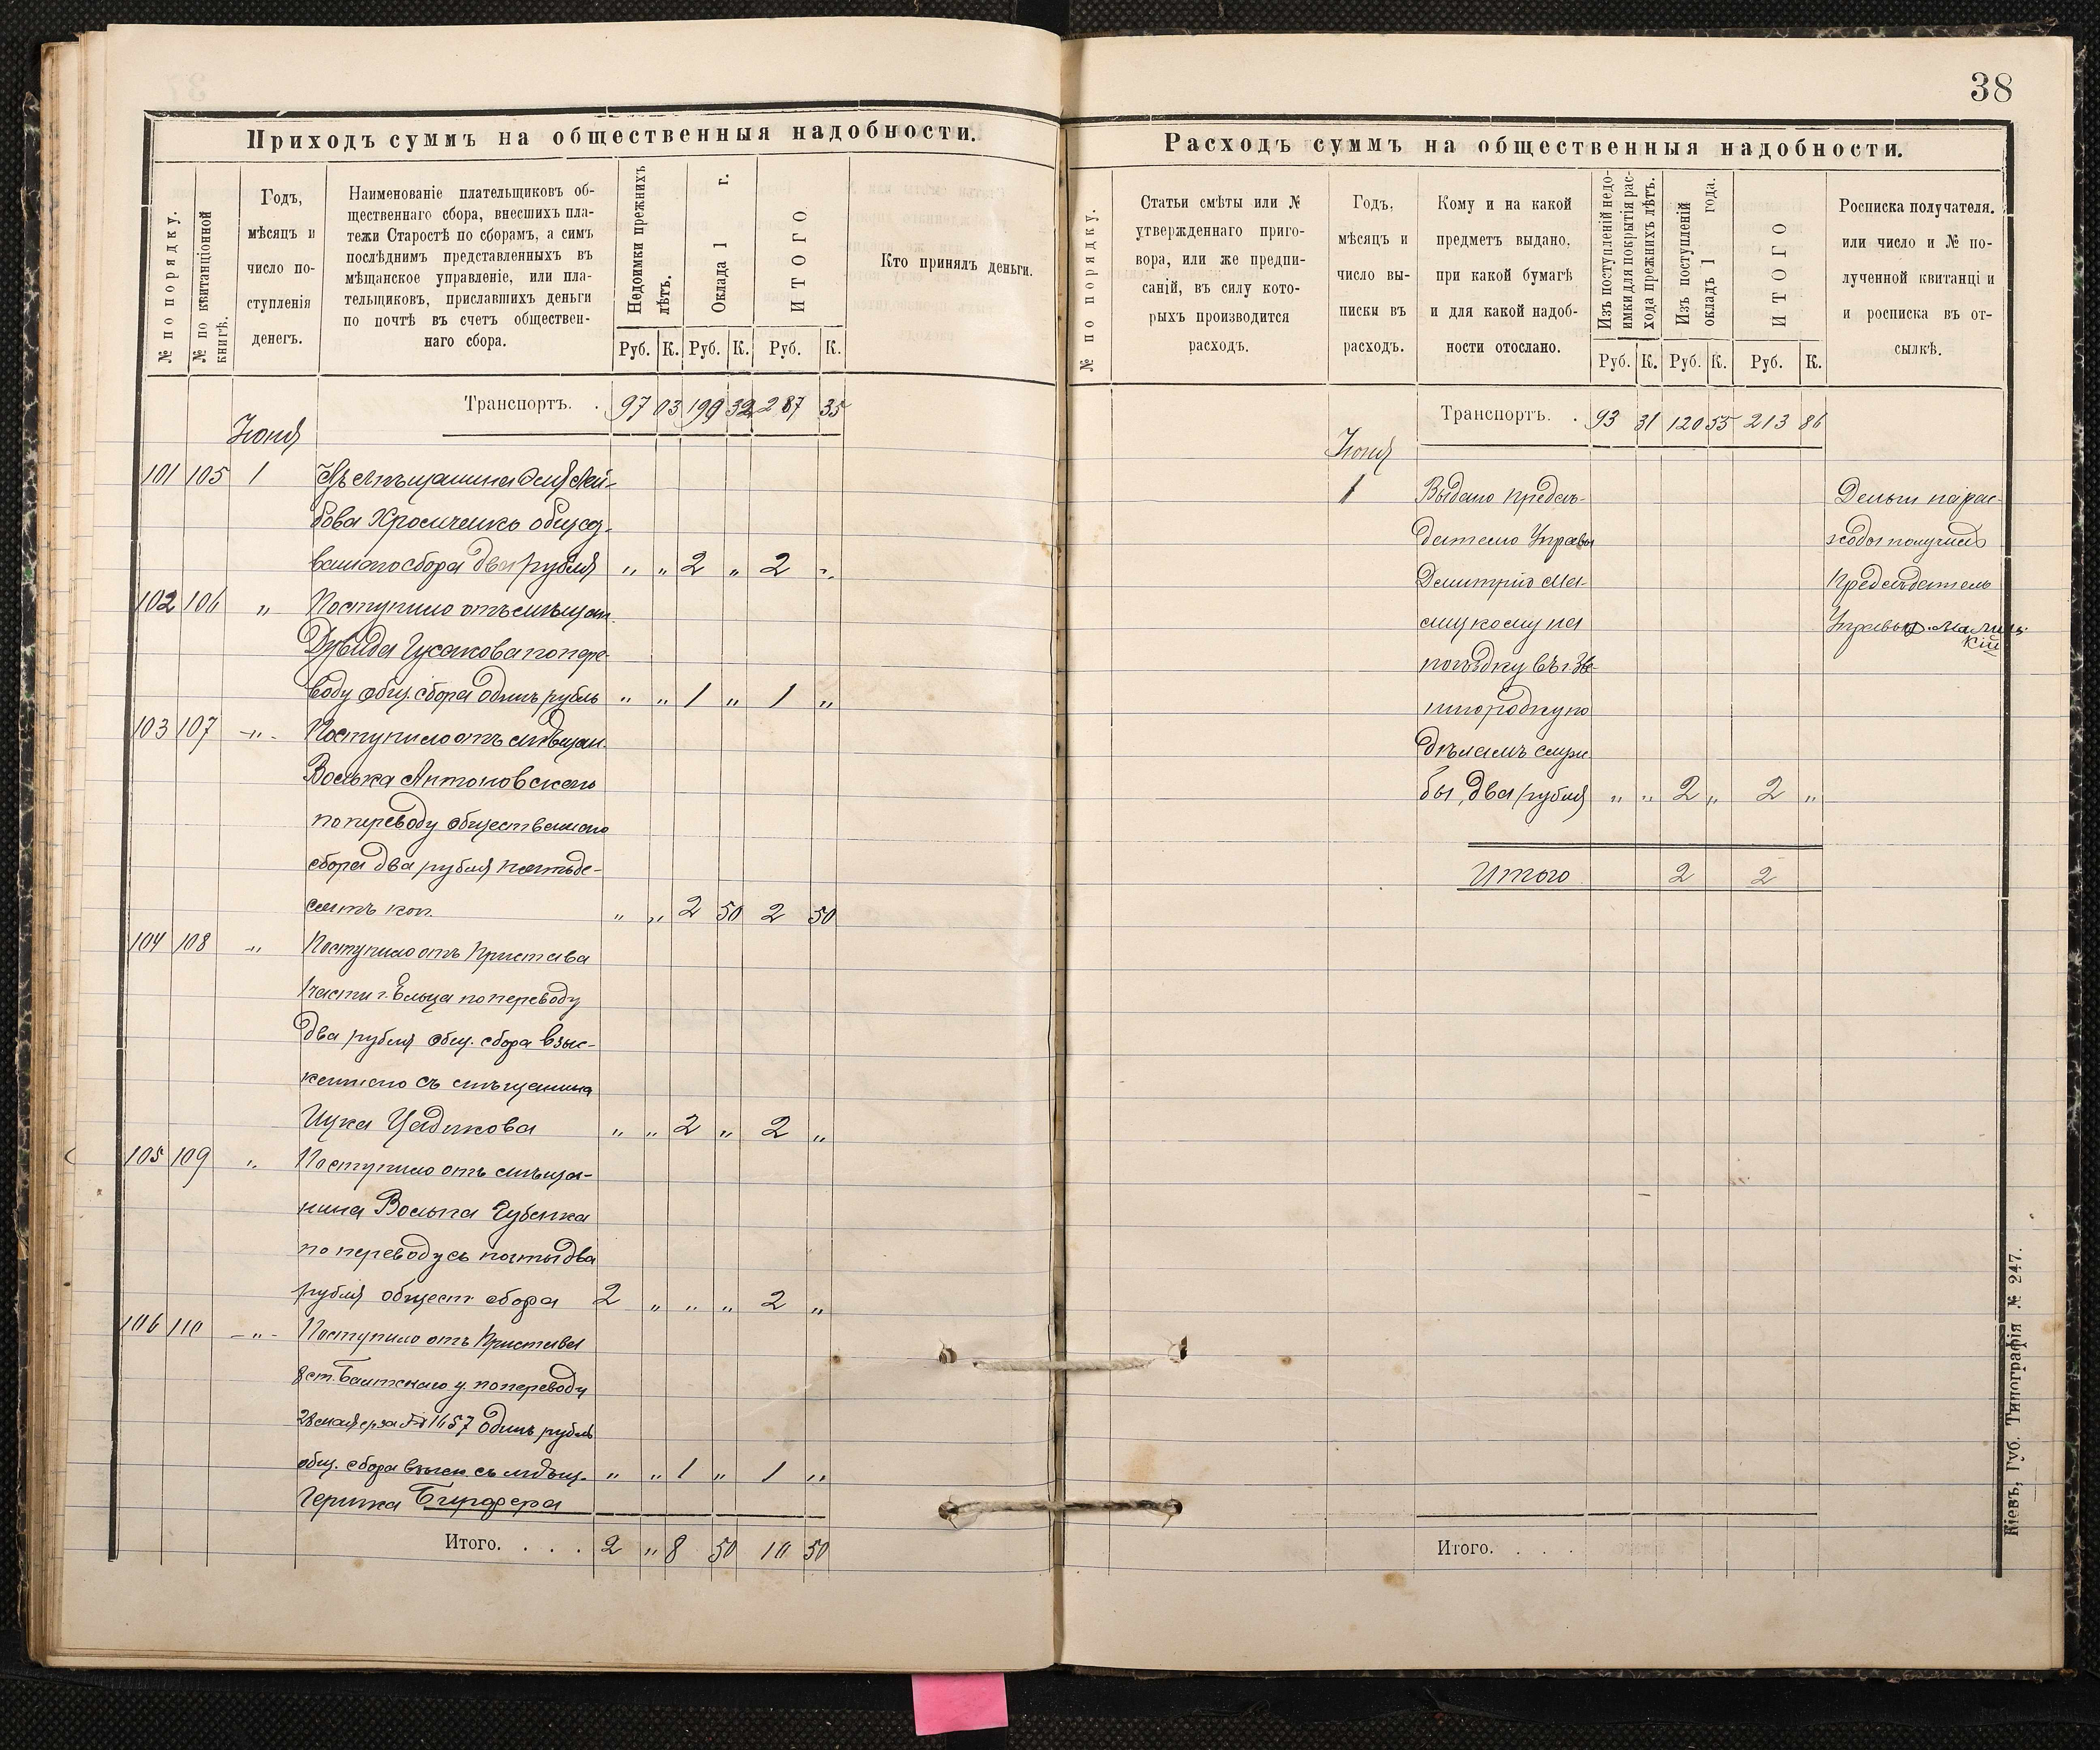 38
Приходъ суммъ на общественныя надобности.
№ по порядку.
№ по квитанціонной
книгѣ.
Годъ,
мѣсяцъ и
число по-
ступленія
денегъ.
Наименованіе плательщиковъ об-
щественнаго сбора, внесшихъ пла-
тежи Старостѣ по сборамъ, а симъ
послѣднимъ представленныхъ въ
мѣщанское управленіе, или пла-
тельщиковъ, приславшихъ деньги
по почтѣ въ счетъ обществен-
наго сбора.
Недоимки прежнихъ
лѣтъ.
Оклада 1 г.
ИТОГО
Руб. К. Руб. К. Руб. К.
Кто принялъ деньги.
Транспортъ. . 97 03 190 32 287 35
Іюня
101 105 1
сбора два рубля „ „ 2 „ 2 „
102 106 „ Поступило отъ мѣщан.
Дувида Гусакова по пере-
воду общ. сбора одинъ рубль „ „ 1 „ 1 „
103 107 -„- Поступило отъ мѣщан.
Волька Антоновскаго
по переводу общественнаго
сбора два рубля пятьде-
сятъ коп. „ „ 2 50 2 50
104 108 „ Поступило отъ Пристава
1 части г. Ельца по переводу
два рубля общ. сбора взыс-
каннаго съ мѣщанина
Ицка Цадикова „ „ 2 „ 2 „
105 109 „ Поступило отъ мѣща-
нина Волька Губенка
по переводу съ почты два
рубля общест сбора 2 „ „ „ 2 „
106 110 -„- Поступило отъ Пристава
ст. Балтскаго у. по переводу
28 мая с. г. за № 1657 одинъ рубль
общ. сбора взыск съ мѣщ. „ „ 1 „ 1 „
Гершка
Итого. . . . 2 „ 8 50 10 50
Расходъ суммъ на общественныя надобности.
№ по порядку.
Статьи смѣты или №
утвержденнаго приго-
вора, или же предпи-
саній, въ силу кото-
рыхъ производится
расходъ.
Годъ,
мѣсяцъ и
число вы-
писки въ
расходъ.
Кому и на какой
предметъ выдано,
при какой бумагѣ
и для какой надоб-
ности отослано.
Изъ поступленій недо-
имки для покрытія рас-
хода прежнихъ лѣтъ.
Изъ поступленій
окладъ 1 года.
ИТОГО
Руб. К. Руб. К. Руб. К.
Росписка получателя.
или число и № по-
лученной квитанціи
и росписка въ от-
сылкѣ.
Транспортъ. . 93 31 120 55 213 86
Іюня
1 Выдано предсѣ- Деньги на рас-
дателю Управы ходы получилъ
Димитрію Ма- Предсѣдатель
лицкому на Управы Д. Малиц-
кій
поѣздку въ г. Зве-
нигородку по
дѣламъ служ
бы, два рубля „ „ 2 „ 2 „
Итого 2 2
Итого. . . .
Кіевъ, Губ. Типографія № 247.